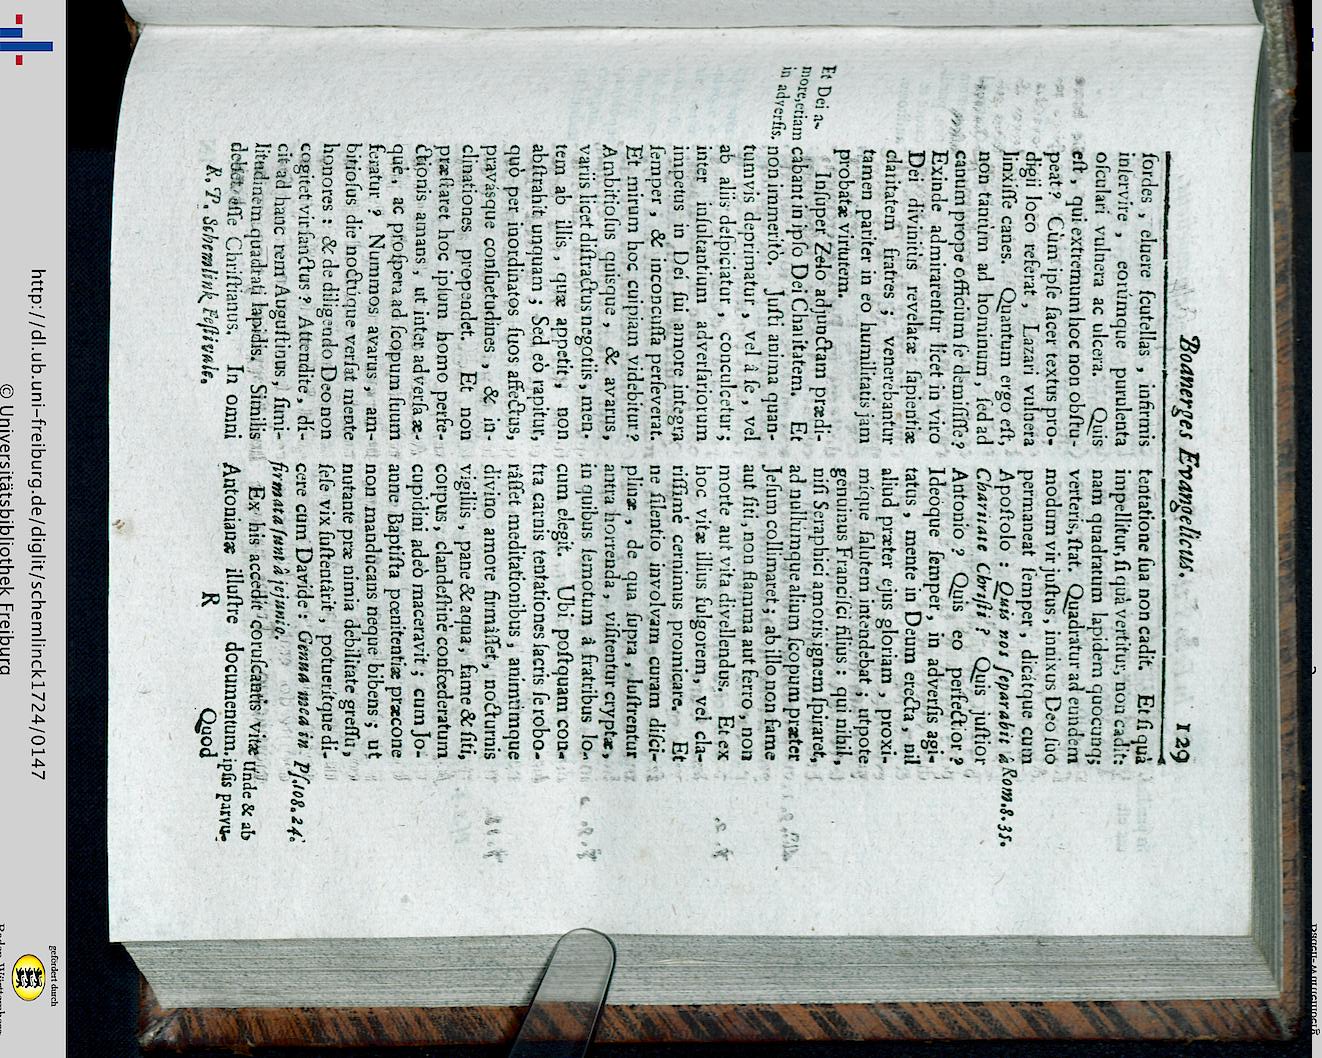 Boanerges Evangelicus. 129
ſordes, eluere ſcutellas, infirmis
inſervire, eorúmque purulenta
oſculari vulnera ac ulcera. Quis
eſt, qui extremum hoc non obſtu-
peat? Cùm ipſe ſacer textus pro-
digii loco referat, Lazari vulnera
linxiſſe canes. Quantum ergo eſt,
non tantùm ad hominum, ſed ad
canum prope officium ſe demiſiſſe?
Exinde admirarentur licet in viro
Dei divinitùs revelatæ ſapientiæ
claritatem fratres; venerebantur
tamen pariter in eo humilitatis jam
probatæ virtutem.
Et Dei a-
more, etiam
in adverſis.
Inſuper Zelo adjunctam prædi-
cabant in ipſo Dei Charitatem. Et
non immeritò. Juſti anima quan-
tumvis deprimatur, vel à ſe, vel
ab aliis deſpiciatur, conculcetur;
inter inſultantium adverſariorum
impetus in Dei ſui amore integra
ſemper, & inconcuſſa perſeverat.
Et mirum hoc cuipiam videbitur?
Ambitioſus quisque, & avarus,
variis licet diſtractus negotiis, men-
tem ab illis, quæ appetit, non
abſtrahit unquam; Sed eò rapitur,
quò per inordinatos ſuos affectus,
pravásque conſuetudines, & in-
clinationes propendet. Et non
præſtaret hoc ipſum homo perfe-
ctionis amans, ut inter adverſa æ-
què, ac proſpera ad ſcopum ſuum
feratur? Nummos avarus, am-
bitioſus die noctúque verſat mente
honores: & de diligendo Deo non
cogitet vir ſanctus? Attendite, di-
cit ad hanc rem Auguſtinus, ſimi-
litudinem quadrati lapidis. Similis
debet eſſe Chriſtianus. In omni
R. P. Schemlink Feſtivale.
tentatione ſua non cadit. Et ſi quà
impellitur, ſi quà vertitur, non cadit:
nam quadratum lapidem quocunq;
verteris, ſtat. Quadratur ad eundem
modum vir juſtus, innixus Deo ſuo
permaneat ſemper, dicátque cum
Apoſtolo: Quis nos ſeparabit à
Charitate Chriſti? Quis juſtior
Rom. 8. 35.
Antonio? Quis eo perfectior?
Ideoque ſemper, in adverſis agi-
tatus, mente in Deum erecta, nil
aliud præter ejus gloriam, proxi-
míque ſalutem intendebat; utpote
genuinus Franciſci filius: qui nihil,
niſi Seraphici amoris ignem ſpiraret,
ad nullumque alium ſcopum præter
Jeſum collimaret; ab illo non fame
aut ſiti, non flamma aut ferro, non
morte aut vita divellendus. Et ex
hoc vitæ illius fulgorem, vel cla-
riſſimè cernimus promicare. Et
ne ſilentio involvam curam diſci-
plinæ, de qua ſupra, luſtrentur
antra horrenda, viſitentur cryptæ,
in quibus ſemotum à fratribus lo-
cum elegit. Ubi poſtquam con-
tra carnis tentationes ſacris ſe robo-
râſſet meditationibus, animúmque
divino amore firmâſſet, nocturnis
vigiliis, pane & aqua, fame & ſiti,
corpus, clandeſtinè confœderatum
cupidini adeò maceravit; cum Jo-
anne Baptiſta pœnitentiæ præcone
non manducans neque bibens; ut
nutante præ nimia debilitate greſſu,
ſeſe vix ſuſtentârit, potuerítque di-
cere cum Davide: Genua mea in-
firmata ſunt à jejunio.
Pſ. 108. 24.
Ex his accedit coruſcantis vitæ
Antonianæ illuſtre documentum,
unde & ab
ipſis parvu-
R
Quod
http://dl.ub.uni-freiburg.de/diglit/schemlinck1724/0147
© Universitätsbibliothek Freiburg
gefördert durch